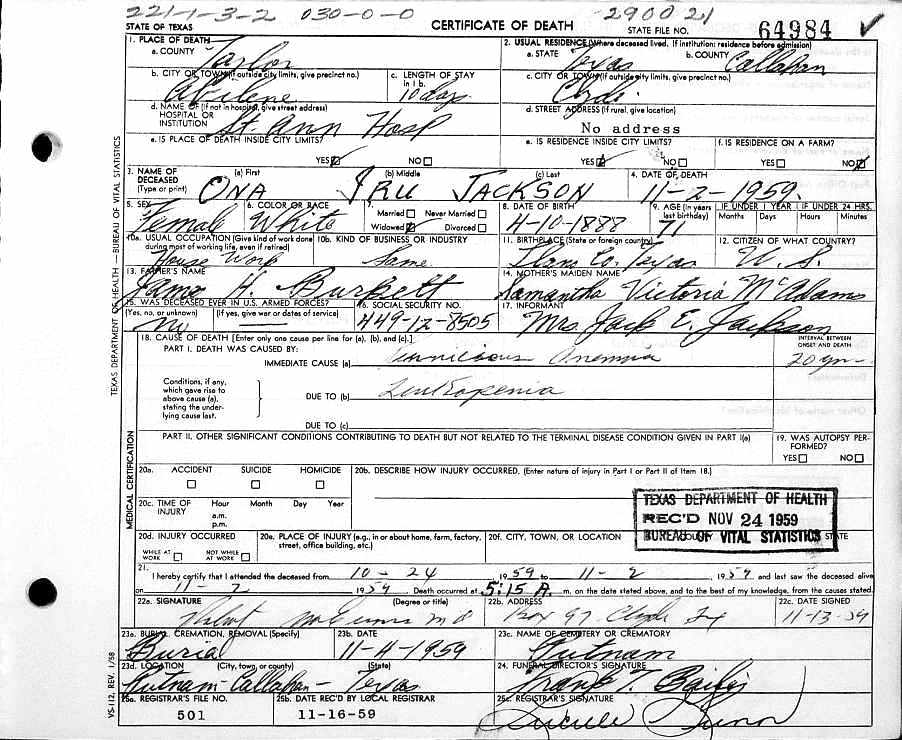 221-1-3-2 030-0-0 290021
STATE OF TEXAS CERTIFICATE OF DEATH STATE FILE NO. 64984 ✓
1. PLACE OF DEATH 2. USUAL RESIDENCE (Where deceased lived. If institution: residence before admission)
a. COUNTY Taylor a. STATE Texas b. COUNTY Callahan
b. CITY OR TOWN (If outside city limits, give precinct no.) c. LENGTH OF STAY in 1 b. c. CITY OR TOWN (If outside city limits, give precinct no.)
Abilene 10 days Clyde
d. NAME OF (If not in hospital, give street address) HOSPITAL OR INSTITUTION St. Ann Hosp d. STREET ADDRESS (If rural, give location)
No address
e. IS PLACE OF DEATH INSIDE CITY LIMITS? e. IS RESIDENCE INSIDE CITY LIMITS? f. IS RESIDENCE ON A FARM?
YES NO YES NO YES NO
3. NAME OF DECEASED (Type or print) (a) First (b) Middle (c) Last 4. DATE OF DEATH
ONA IRU JACKSON 11-2-1959.
5. SEX 6. COLOR OR RACE 7. Married Never Married Widowed Divorced 8. DATE OF BIRTH 9. AGE (In years last birthday) IF UNDER 1 YEAR IF UNDER 24 HRS.
Months Days Hours Minutes
Female White 4-10-1888 71
10a. USUAL OCCUPATION (Give kind of work done during most of working life, even if retired) 10b. KIND OF BUSINESS OR INDUSTRY 11. BIRTHPLACE (State or foreign country) 12. CITIZEN OF WHAT COUNTRY?
House Work Same Co. Texas U. S.
13. FATHER'S NAME 14. MOTHER'S MAIDEN NAME
H. Burkett Samantha Victoria McAdams
15. WAS DECEASED EVER IN U.S. ARMED FORCES? 16. SOCIAL SECURITY NO. 17. INFORMANT
(Yes, no, or unknown) (If yes, give war or dates of service)
No — 449-12-8505 Mrs. Jack E. Jackson
18. CAUSE OF DEATH [Enter only one cause per line for (a), (b), and (c).] INTERVAL BETWEEN ONSET AND DEATH
PART I. DEATH WAS CAUSED BY:
IMMEDIATE CAUSE (a) Pernicious Anemia 20 yrs.
Conditions, if any, which gave rise to above cause (a), stating the underlying cause last.
DUE TO (b) Leukopenia
DUE TO (c)
PART II. OTHER SIGNIFICANT CONDITIONS CONTRIBUTING TO DEATH BUT NOT RELATED TO THE TERMINAL DISEASE CONDITION GIVEN IN PART I(a) 19. WAS AUTOPSY PERFORMED?
YES NO
20a. ACCIDENT SUICIDE HOMICIDE 20b. DESCRIBE HOW INJURY OCCURRED. (Enter nature of injury in Part I or Part II of Item 18.)
20c. TIME OF INJURY Hour Month Day Year
a.m.
p.m.
TEXAS DEPARTMENT OF HEALTH
REC'D NOV 24 1959
BUREAU OF VITAL STATISTICS
20d. INJURY OCCURRED 20e. PLACE OF INJURY (e.g., in or about home, farm, factory, street, office building, etc.) 20f. CITY, TOWN, OR LOCATION COUNTY STATE
WHILE AT WORK NOT WHILE AT WORK
21. I hereby certify that I attended the deceased from 10-24 1959 to 11-2, 1959 and last saw the deceased alive
on 11-2 1959 Death occurred at 5:15 A. m. on the date stated above, and to the best of my knowledge, from the causes stated.
22a. SIGNATURE (Degree or title) 22b. ADDRESS 22c. DATE SIGNED
M D Box 97 Clyde Tx 11-13-59
23a. BURIAL, CREMATION, REMOVAL (Specify) 23b. DATE 23c. NAME OF CEMETERY OR CREMATORY
Burial 11-4-1959 Putnam
23d. LOCATION (City, town, or county) (State) 24. FUNERAL DIRECTOR'S SIGNATURE
Putnam-Callahan-Texas Frank T. Bailey
25a. REGISTRAR'S FILE NO. 25b. DATE REC'D BY LOCAL REGISTRAR 25c. REGISTRAR'S SIGNATURE
501 11-16-59
TEXAS DEPARTMENT OF HEALTH—BUREAU OF VITAL STATISTICS
MEDICAL CERTIFICATION
VS-112, REV. 1/58